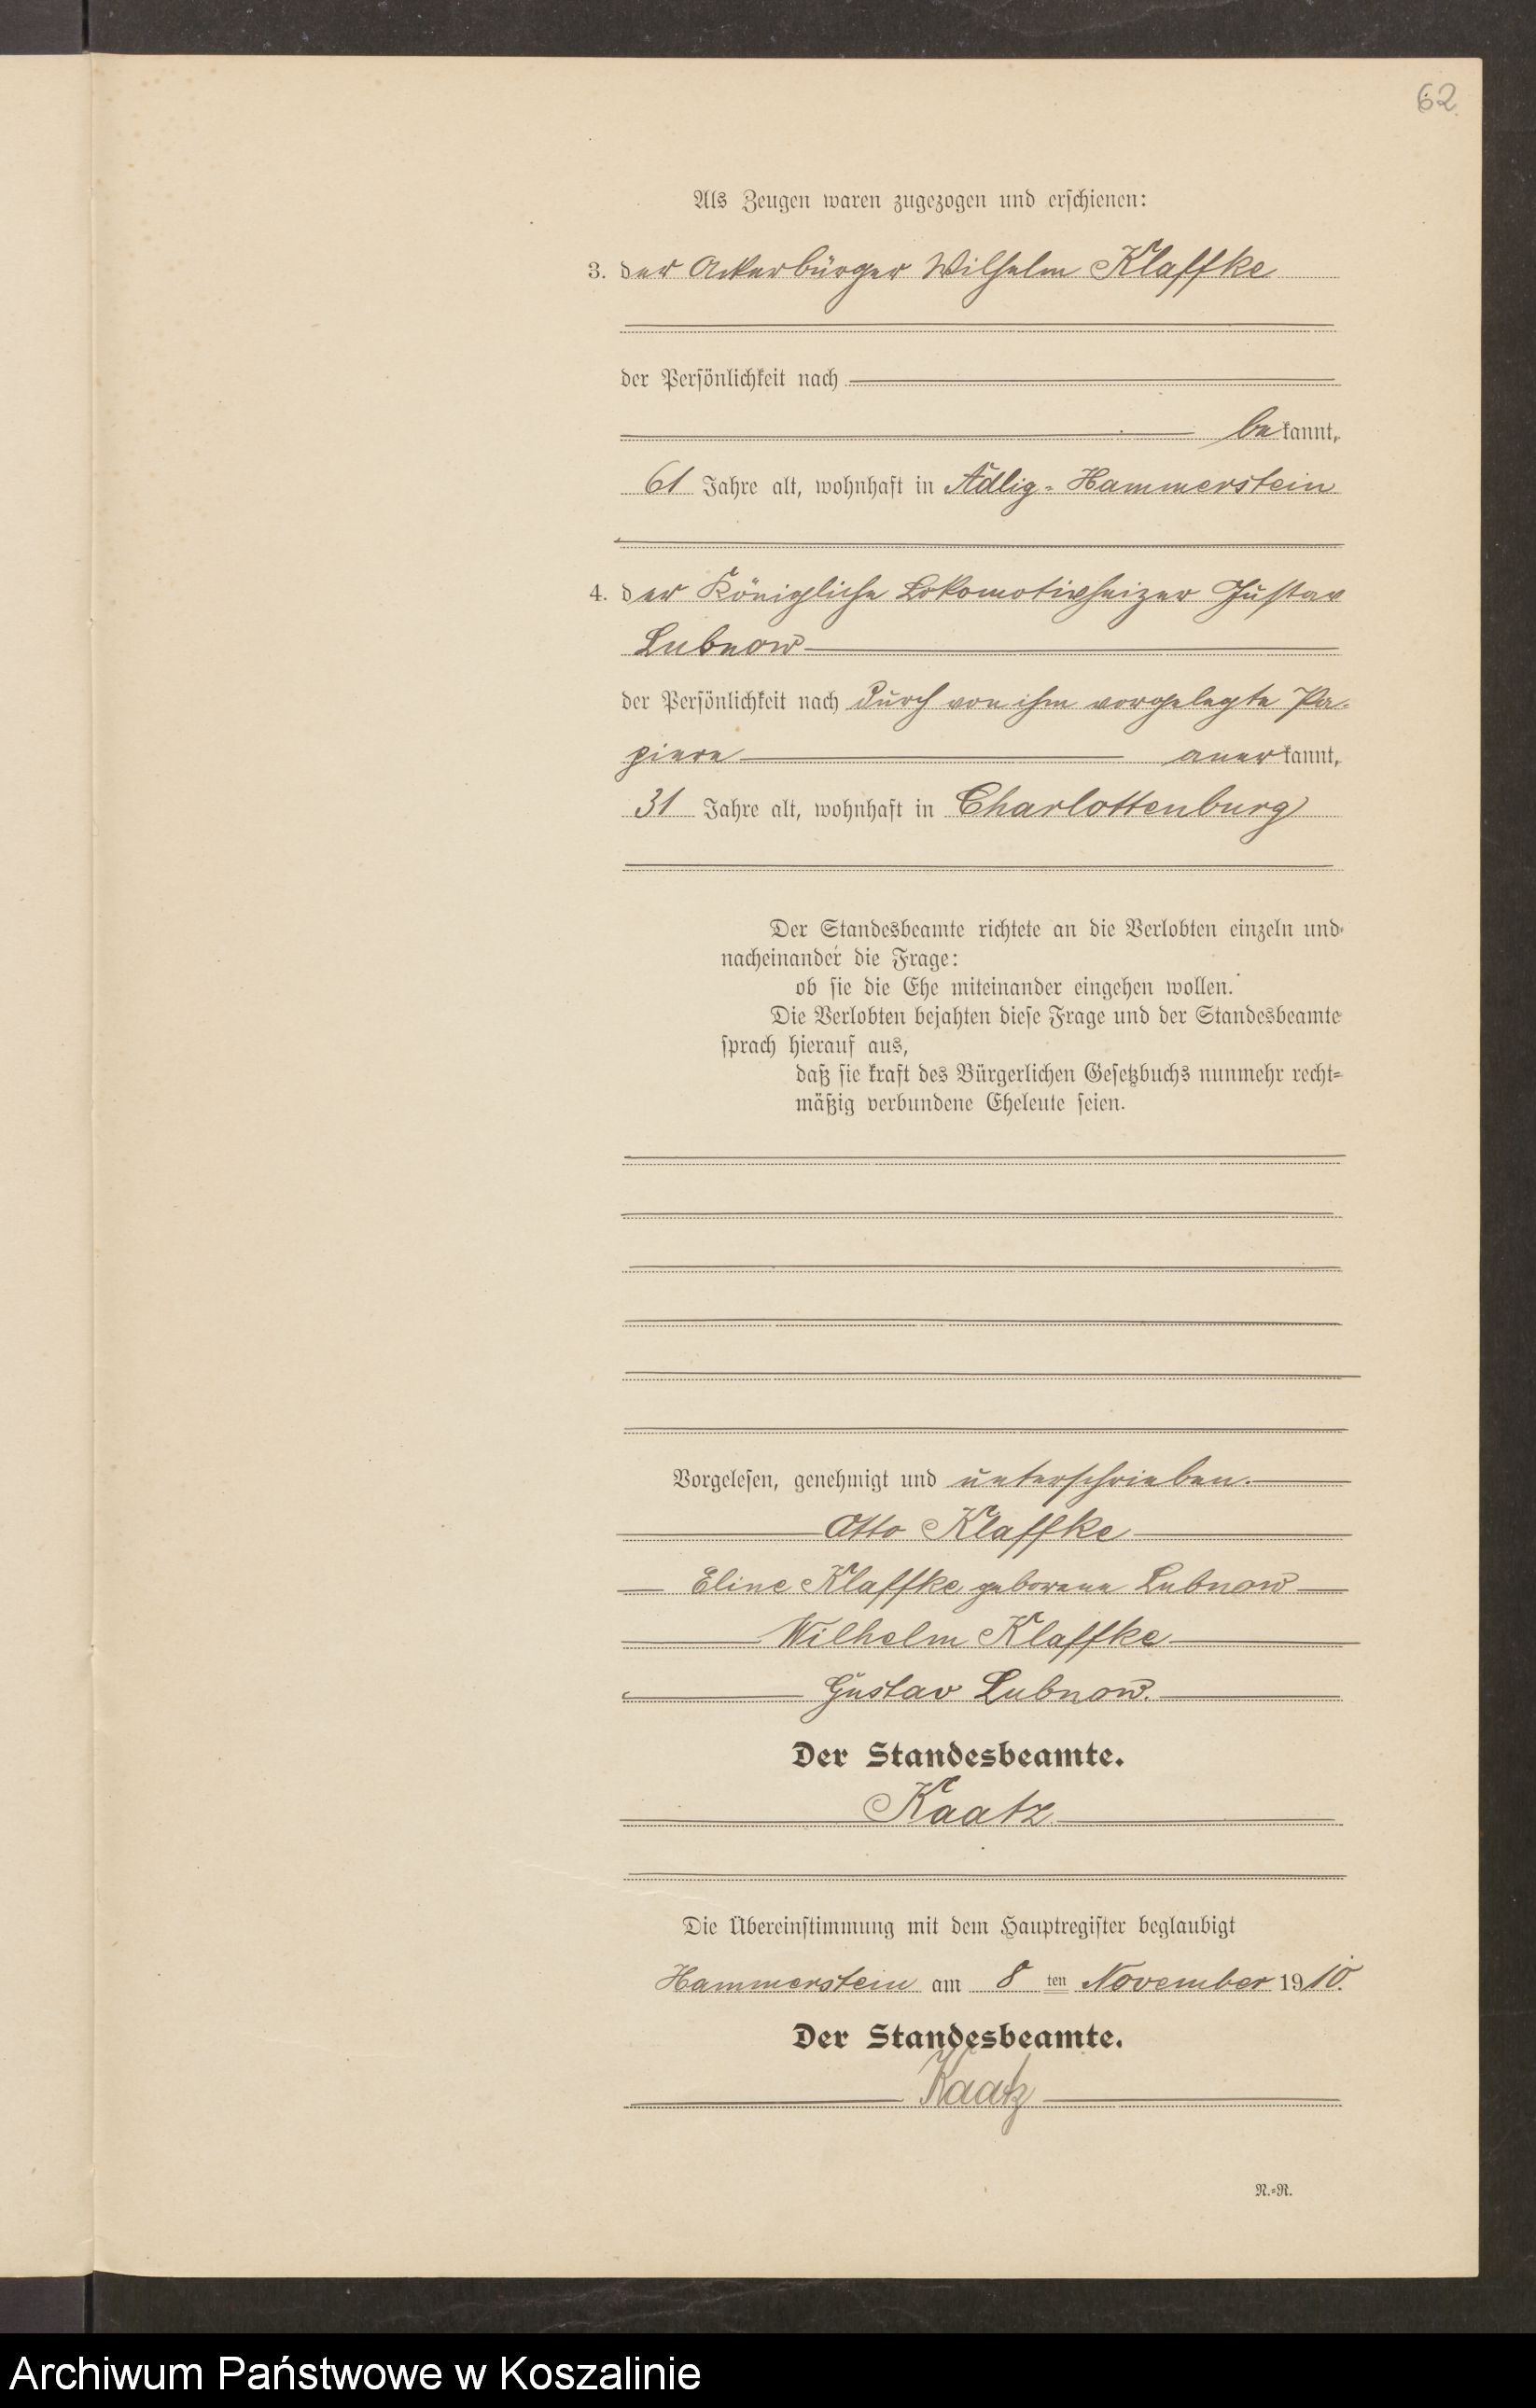 62
Als Zeugen waren zugezogen und erschienen:
3. der Ackerbürger Wilhelm Klaffke
der Persönlichkeit nach
bekannt,
61 Jahre alt, wohnhaft in Adlig-Hammerstein
4. der Königliche Lokomotivheizer Gustav
Lubnow
der Persönlichkeit nach durch von ihm vorgelegte Pa-
piere anerkannt,
31 Jahre alt, wohnhaft in Charlottenburg
Der Standesbeamte richtete an die Verlobten einzeln und
nacheinander die Frage:
ob sie die Ehe miteinander eingehen wollen.
Die Verlobten bejahten diese Frage und der Standesbeamte
sprach hierauf aus,
daß sie kraft des Bürgerlichen Gesetzbuchs nunmehr recht-
mäßig verbundene Eheleute seien.
Vorgelesen, genehmigt und unterschrieben.
Otto Klaffke
Eline Klaffke geborene Lubnow
Wilhelm Klaffke
Gustav Lubnow.
Der Standesbeamte.
Kaatz
Die Übereinstimmung mit dem Hauptregister beglaubigt
Hammerstein am 8 ten November 1910.
Der Standesbeamte.
Kaatz
N.-R.
Archiwum Państwowe w Koszalinie